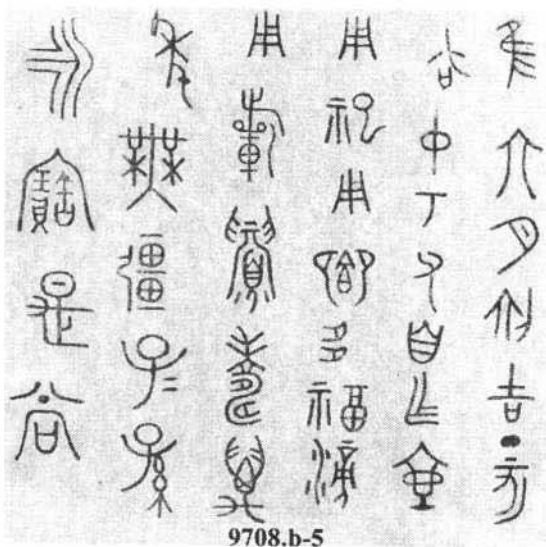 隹六月初吉丁亥
冶中丂父自乍壺
用祀用鄉多福滂
用𣄨眉壽萬
年無疆子=孫
永寶是尚
9708.b-5